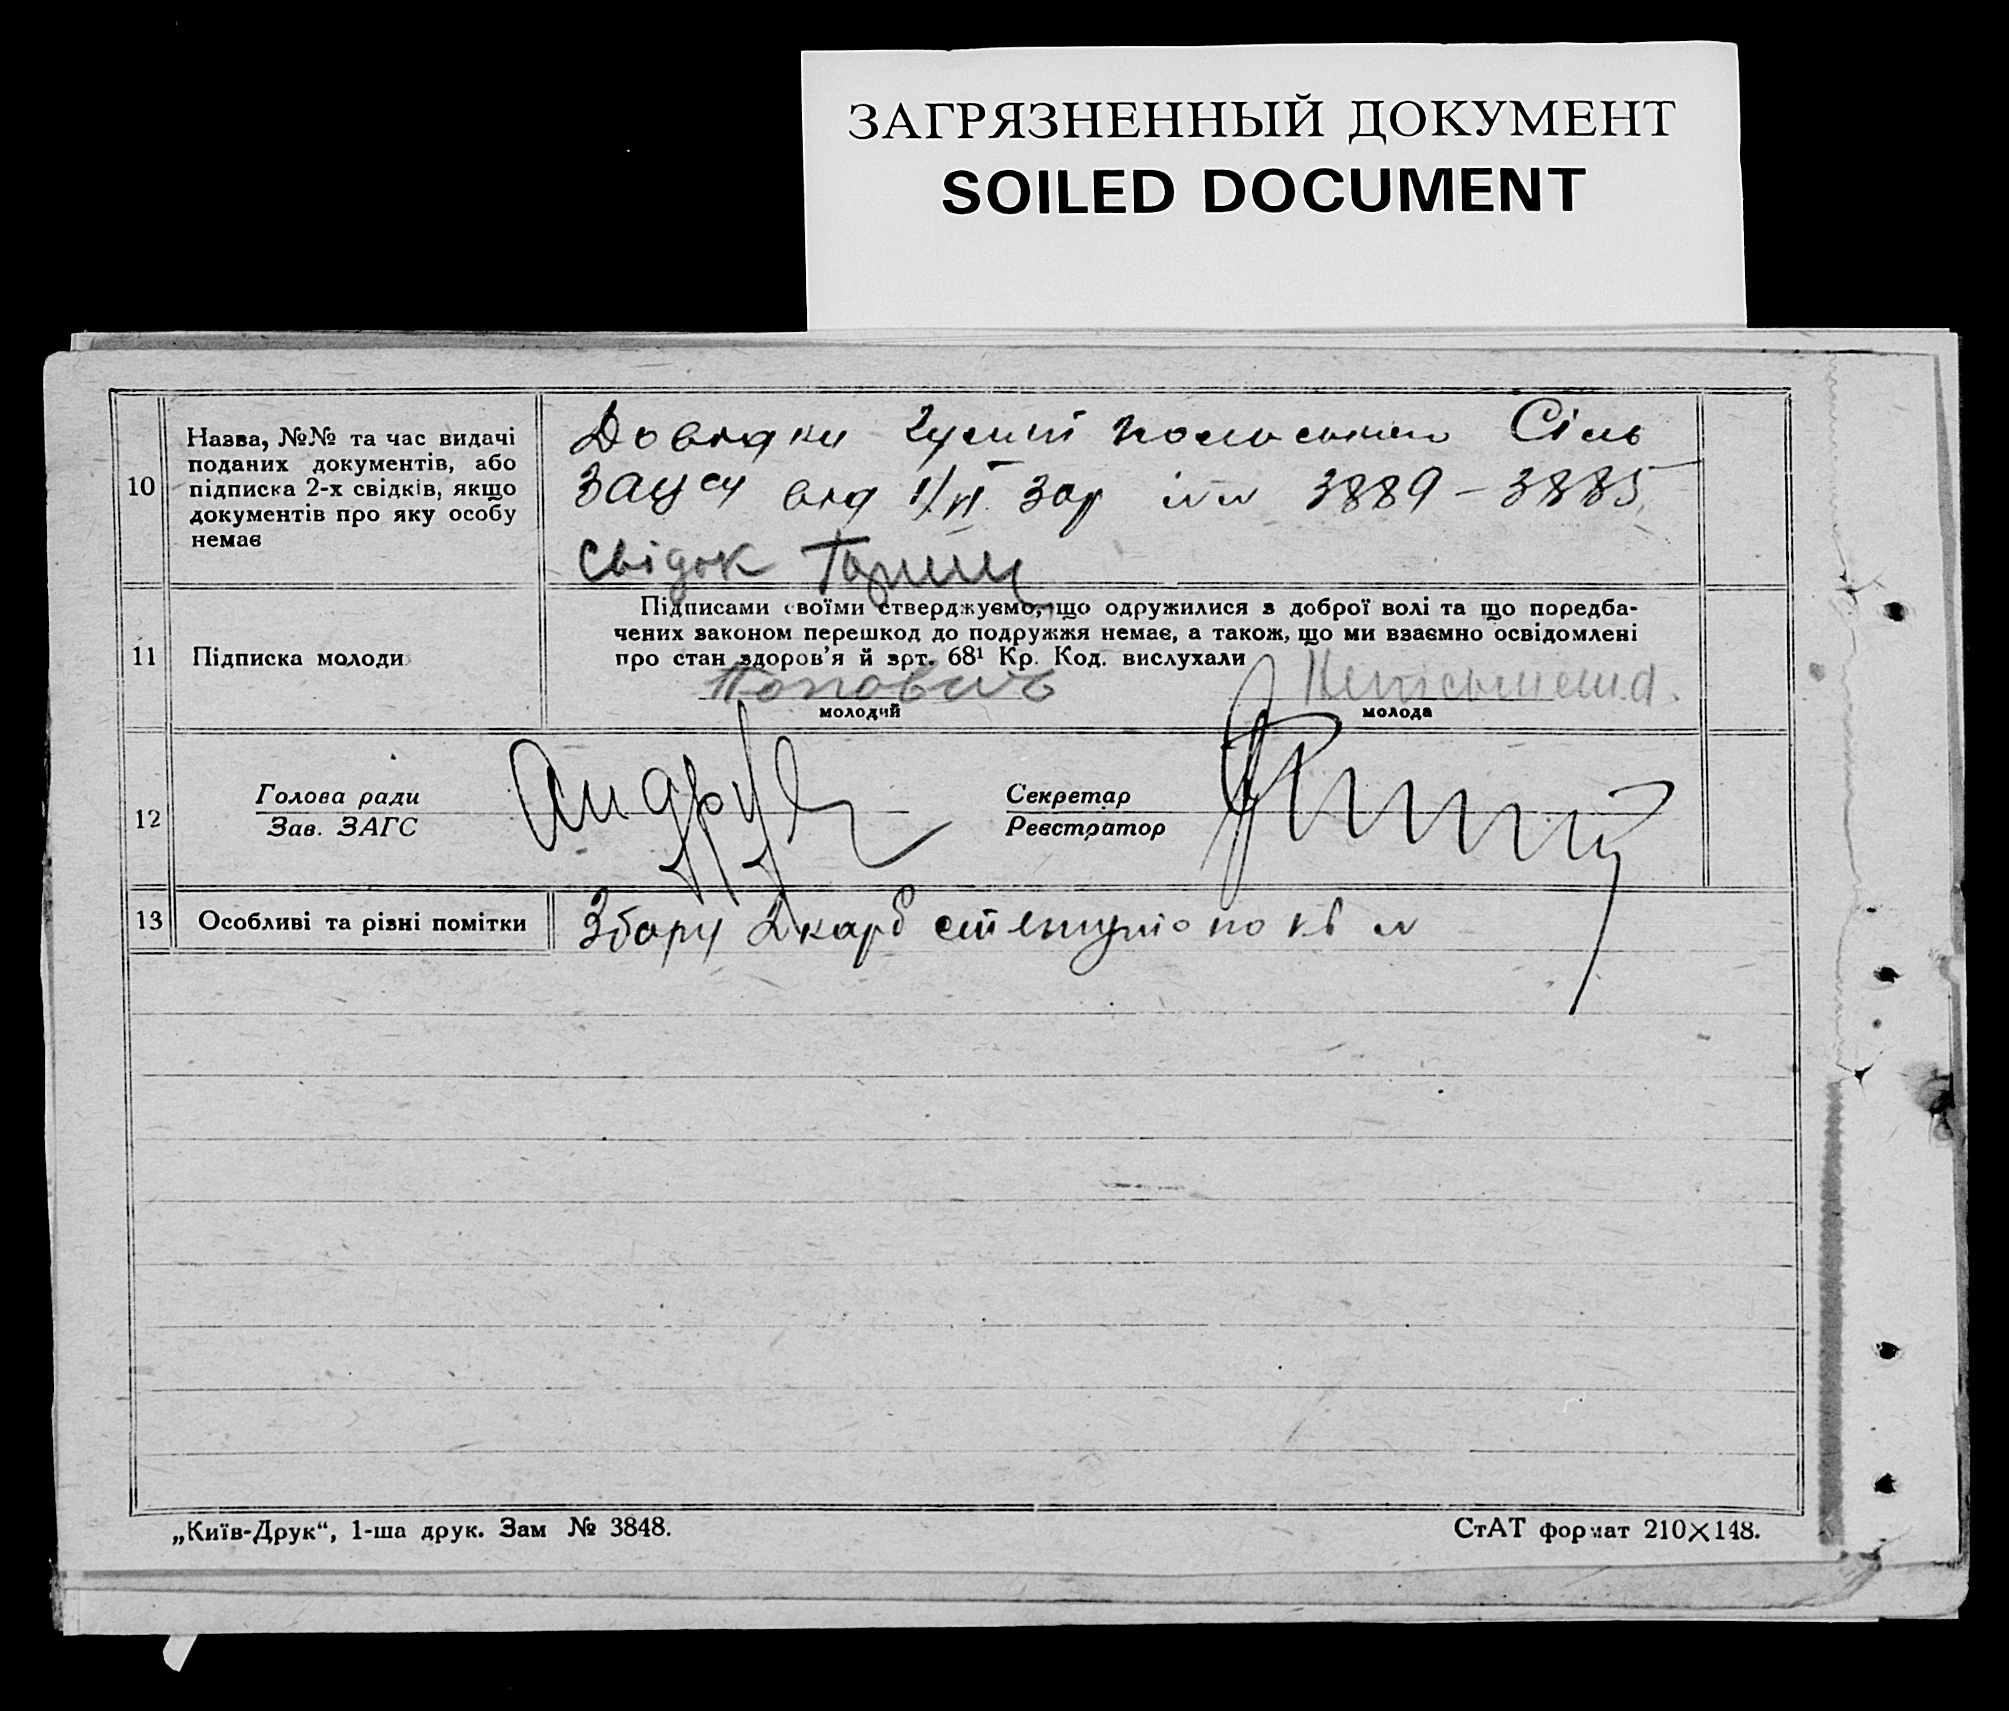 ЗАГРЯЗНЕННЫЙ ДОКУМЕНТ
SOILED DOCUMENT
10
Назва, №№ та час видачі
поданих документів, або
підписка 2-х свідків, якщо
документів про яку особу
немає
Довідки Сіль
від 1/VI 3889 – 3885
Свідок
11
Підписка молоди
Підписами своїми стверджуємо, що одружилися з доброї волі та що передба-
чених законом перешкод до подружжя немає, а також, що ми взаємно освідомлені
про стан здоров'я й врт. 68¹ Кр. Код. вислухали
Попович
молодий
молода
12
Голова ради
Зав. ЗАГС
Секретар
Реєстратор
13
Особливі та різні помітки
Збору 2 карб
„Київ-Друк“, 1-ша друк. Зам № 3848.
СтАТ формат 210×148.